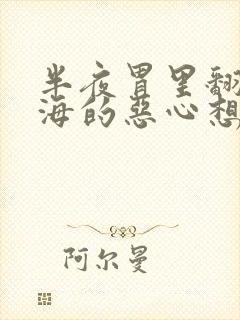 半夜胃里翻
海的恶心想
阿尔曼